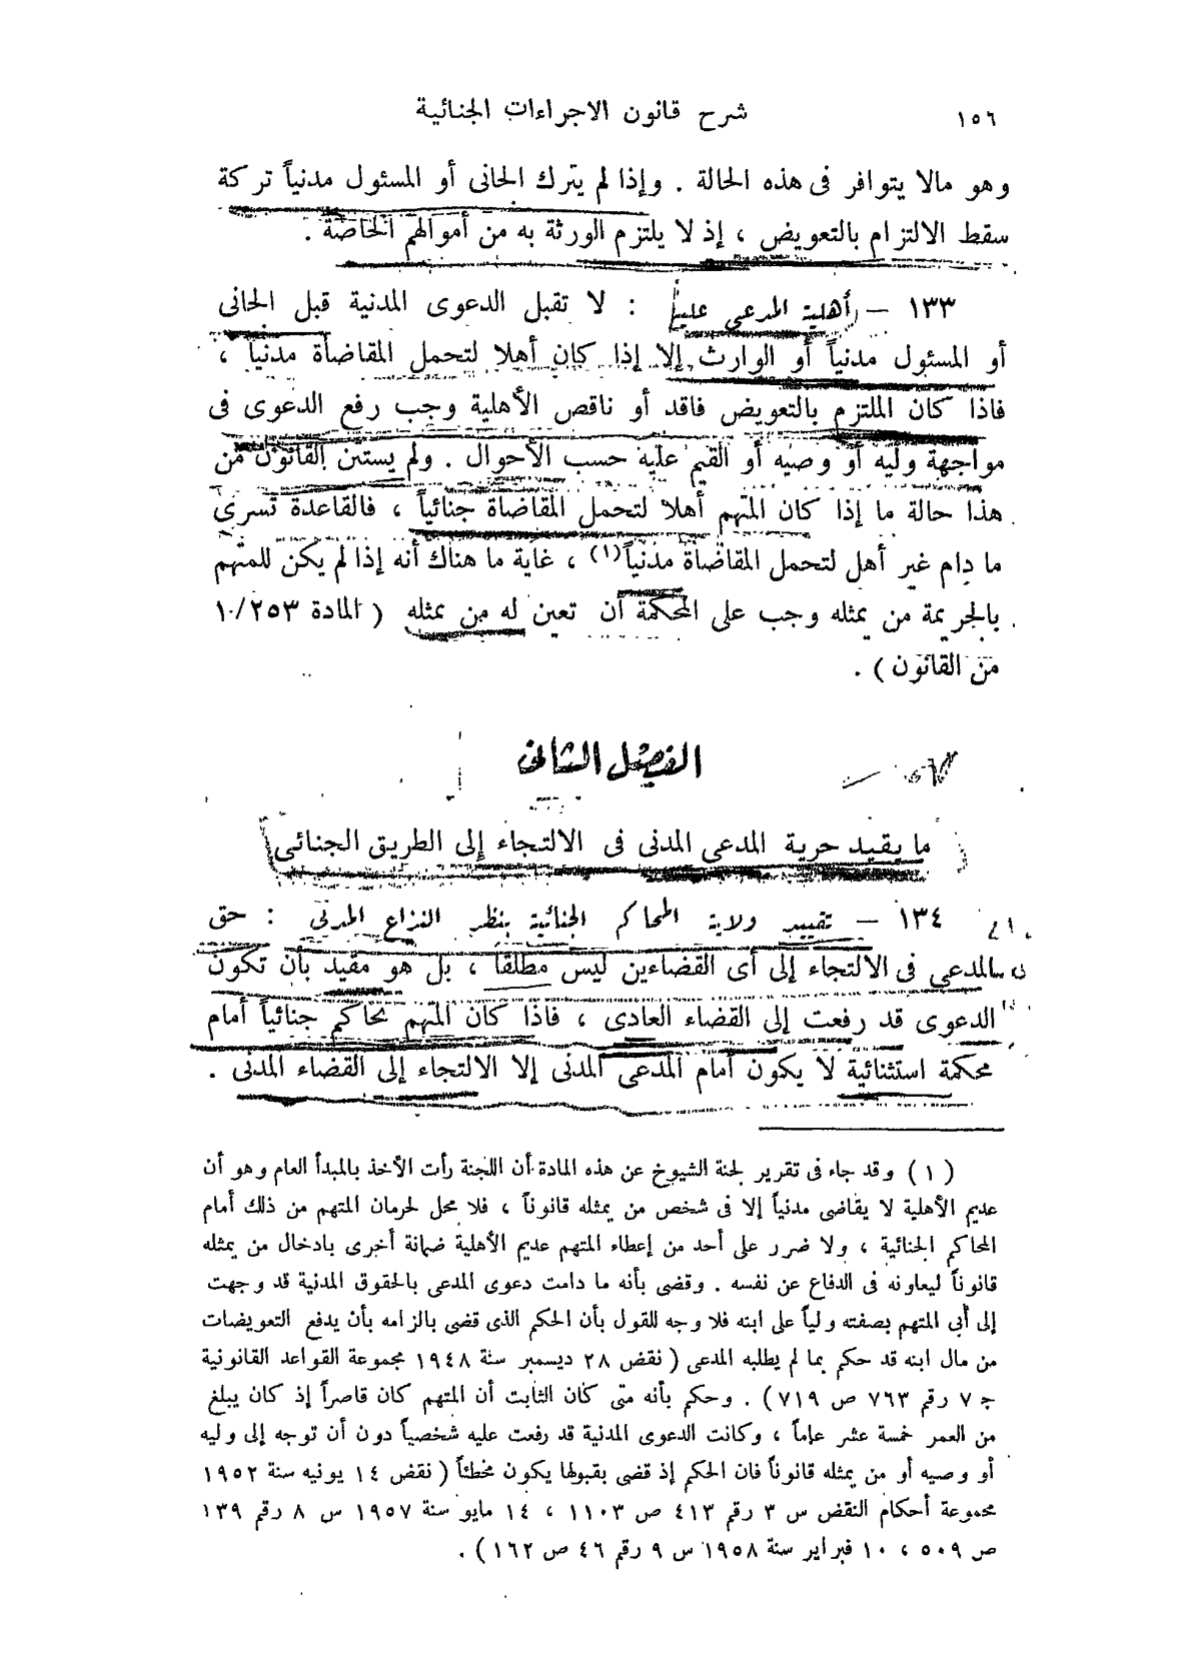 ١٥٦
شرح قانون الاجراءات الجنائية
وهو مالا يتوافر فى هذه الحالة . وإذا لم يترك الجانى أو المسئول مدنياً تركة
سقط الالتزام بالتعويض ، إذ لا يلتزم الورثة به من أموالهم الخاصة .
١٣٣ – أهلية المدعى عليه : لا تقبل الدعوى المدنية قبل الجانى
أو المسئول مدنياً أو الوارث إلا إذا كان أهلا لتحمل المقاضاة مدنياً ،
فاذا كان الملتزم بالتعويض فاقد أو ناقص الأهلية وجب رفع الدعوى فى
مواجهة وليه أو وصيه أو القيم عليه حسب الأحوال . ولم يستثن القانون من
هذا حالة ما إذا كان المتهم أهلا لتحمل المقاضاة جنائياً ، فالقاعدة تسرى
ما دام غير أهل لتحمل المقاضاة مدنياً(١) ، غاية ما هناك أنه إذا لم يكن للمتهم
بالجريمة من يمثله وجب على المحكمة أن تعين له من يمثله ( المادة ١٠/٢٥٣
من القانون ) .
الفصل الثانى
ما يقيد حرية المدعى المدنى فى الالتجاء إلى الطريق الجنائى
١٣٤ – تقييد ولاية المحاكم الجنائية بنظر النزاع المدنى : حق
المدعى فى الالتجاء إلى أى القضاءين ليس مطلقاً ، بل هو مقيد بأن تكون
الدعوى قد رفعت إلى القضاء العادى ، فاذا كان المتهم يحاكم جنائياً أمام
محكمة استثنائية لا يكون أمام المدعى المدنى إلا الالتجاء إلى القضاء المدنى .
( ١ ) وقد جاء فى تقرير لجنة الشيوخ عن هذه المادة أن اللجنة رأت الأخذ بالمبدأ العام وهو أن
عديم الأهلية لا يقاضى مدنياً إلا فى شخص من يمثله قانوناً ، فلا محل لحرمان المتهم من ذلك أمام
المحاكم الجنائية ، ولا ضرر على أحد من إعطاء المتهم عديم الأهلية ضمانة أخرى بادخال من يمثله
قانوناً ليعاونه فى الدفاع عن نفسه . وقضى بأنه ما دامت دعوى المدعى بالحقوق المدنية قد وجهت
إلى أبى المتهم بصفته ولياً على ابنه فلا وجه للقول بأن الحكم الذى قضى بالزامه بأن يدفع التعويضات
من مال ابنه قد حكم بما لم يطلبه المدعى ( نقض ٢٨ ديسمبر سنة ١٩٤٨ مجموعة القواعد القانونية
ج ٧ رقم ٧٦٣ ص ٧١٩ ) . وحكم بأنه متى كان الثابت أن المتهم كان قاصراً إذ كان يبلغ
من العمر خمسة عشر عاماً ، وكانت الدعوى المدنية قد رفعت عليه شخصياً دون أن توجه إلى وليه
أو وصيه أو من يمثله قانوناً فان الحكم إذ قضى بقبولها يكون مخطئاً ( نقض ١٤ يونيه سنة ١٩٥٢
مجموعة أحكام النقض س ٣ رقم ٤١٣ ص ١١٠٣ ، ١٤ مايو سنة ١٩٥٧ س ٨ رقم ١٣٩
ص ٥٠٩ ، ١٠ فبراير سنة ١٩٥٨ س ٩ رقم ٤٦ ص ١٦٢ ) .